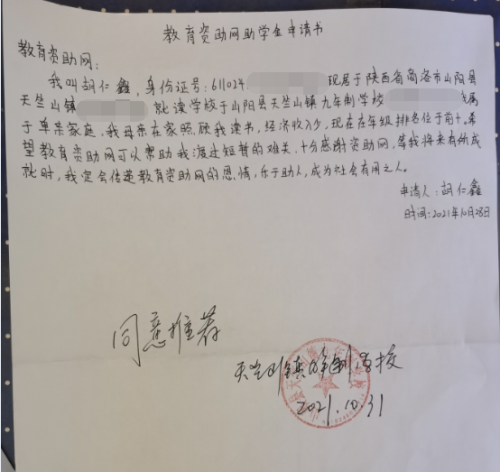 教育资助网助学金申请书
教育资助网：
我叫胡仁鑫，身份证号：611024 现居于陕西省商洛市山阳县
天竺山镇 就读学校于山阳县天竺山镇九年制学校 属
于单亲家庭，我母亲在家照顾我读书，经济收入少，现在在年级排名位于前十。希
望教育资助网可以帮助我渡过短暂的难关，十分感谢资助网，等我将来有所成
就时，我定会传递教育资助网的恩情，乐于助人，成为社会有用之人。
申请人：胡仁鑫
时间：2021年10月28日
同意推荐
天竺山镇九年制学校
2021.10.31